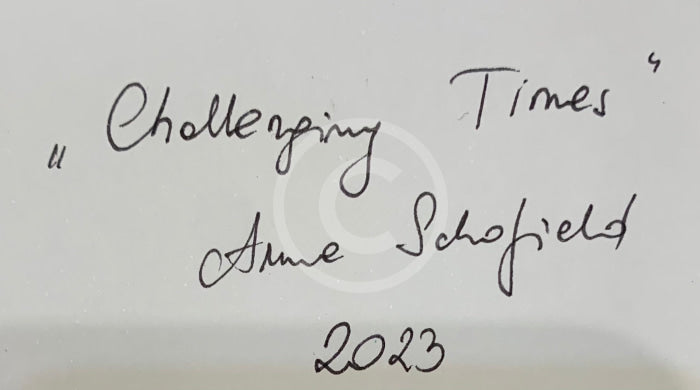 „Challenging Times“
Anne Schofield
2023